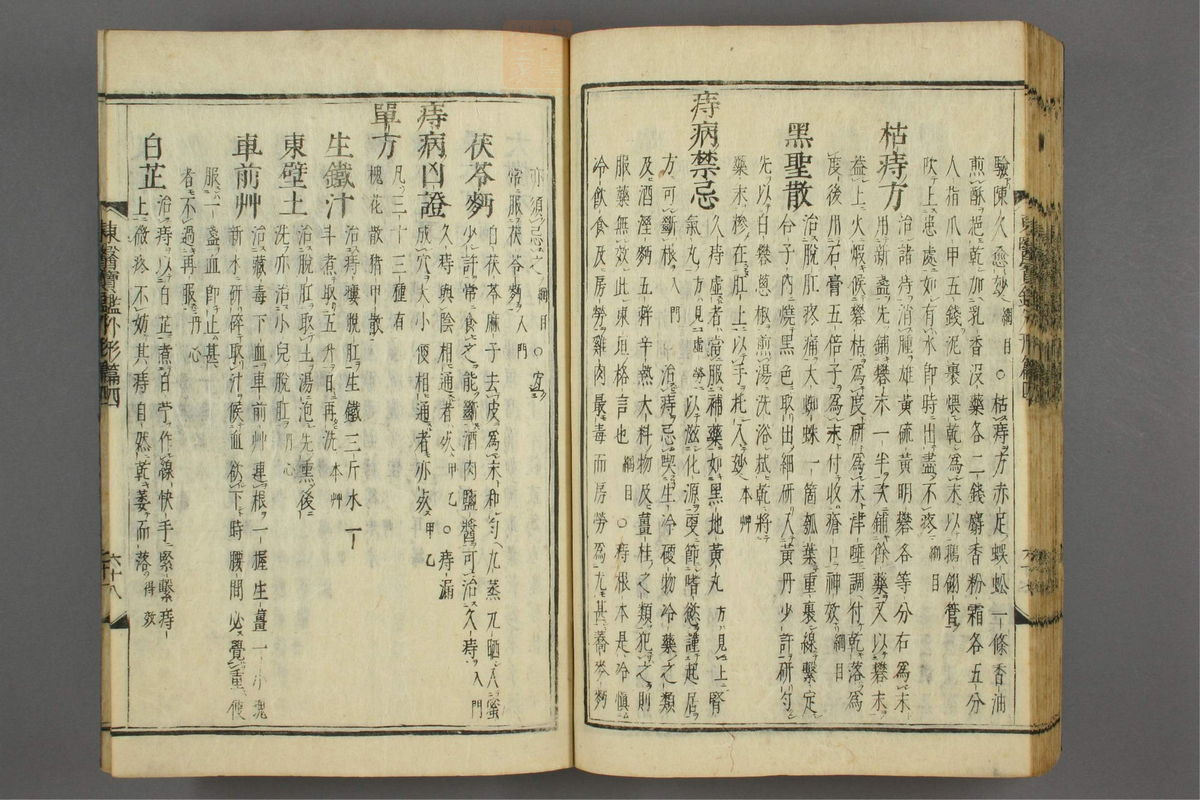 驗陳久愈妙 綱目 ○枯痔方赤足蜈蚣一條香油
煎酥挹乾加乳香沒藥各二錢麝香粉霜各五分
人指爪甲五錢泥裹煨乾爲末以鵝翎管
吹上患處如有水卽時出盡不疼 綱目
枯痔方 治諸痔消腫雄黃硫黃明礬各等分右爲末
用新盞先鋪礬末一半次鋪餘藥又以礬末
蓋上火煆候礬枯爲度研爲末津唾調付乾落爲
度後用石膏五倍子爲末付收瘡口神效 綱目
黑聖散 治脫肛疼痛大蜘蛛一箇瓠葉重裹線繫定
合子內燒黑色取出細研入黃丹少許研勻
先以白礬葱椒煎湯洗浴拭乾將
藥末糝在肛上以手托入妙 本艸
痔病禁忌 久痔虛者當服補藥如黑地黃丸 方見上 腎
氣丸 方見虛勞 以滋化源更節嗜慾謹起居
方可斷根 入門 治痔忌喫生冷硬物冷藥之類
及酒溼麪五辢辛熱大料物及薑桂之類犯之則
服藥無效此東垣格言也 綱目 ○痔根本是冷愼
冷飮食及房勞雞肉最毒而房勞爲尤甚蕎麥麪
亦須忌之 綱目 ○宜
常服茯苓麪 入門
茯苓麪 白茯苓麻子去皮爲末和勻九蒸九晒入蜜
少許常食之能斷酒肉鹽醬可治久痔 入門
痔病凶證 久痔與陰相通者死 甲乙 ○痔漏
成穴大小便相通者亦死 甲乙
單方 凡三十三種有
槐花散猪甲散
生鐵汁 治痔瘻脫肛生鐵三斤水一
斗煮取五升日再洗 本艸
東壁土 治脫肛取土湯泡先熏後
洗亦治小兒脫肛 丹心
車前艸 治藏毒下血車前艸連根一握生薑一小塊
新水研碎取汁候血欲下時腰間必覺重便
服一盞血卽止甚
者不過再服 丹心
白芷 治痔以白芷煮白苧作線快手緊繫痔
上微疼不妨其痔自然乾萎而落 得效
東醫寶鑑外形篇四
六十八